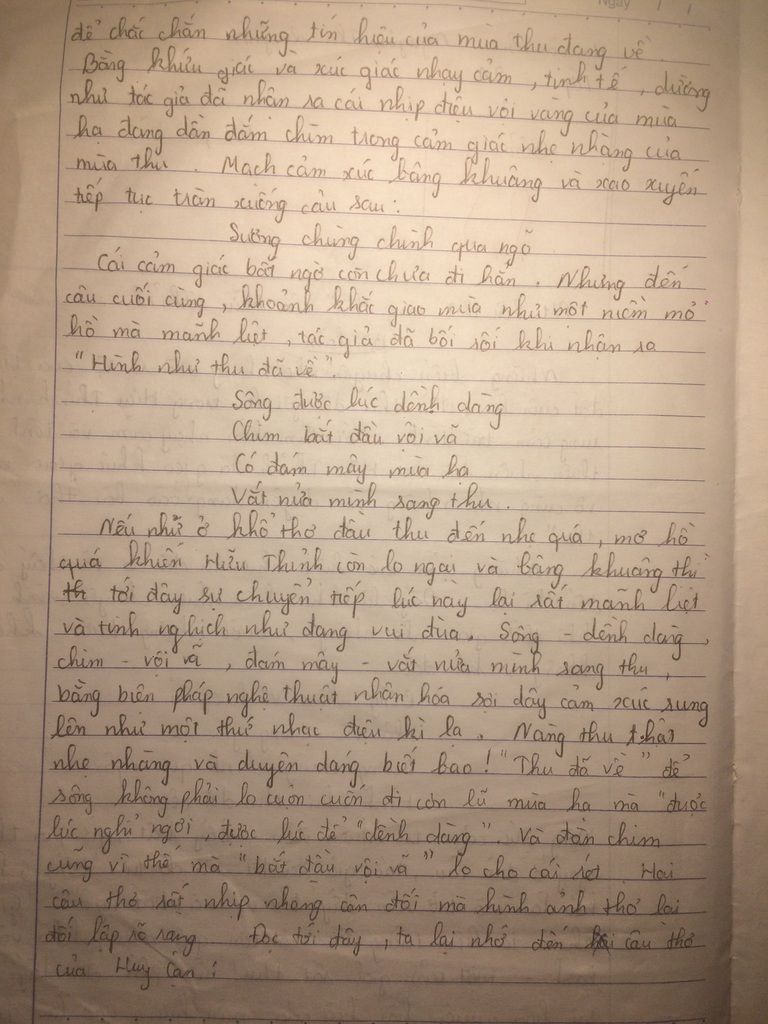 Ngày / /
để chắc chắn những tín hiệu của mùa thu đang về.
Bằng khứu giác và xúc giác nhạy cảm, tinh tế, dường
như tác giả đã nhận ra cái nhịp điệu vội vàng của mùa
hạ đang dần đắm chìm trong cảm giác nhẹ nhàng của
mùa thu. Mạch cảm xúc bâng khuâng và xao xuyến
tiếp tục tràn xuống câu sau:
Sương chùng chình qua ngõ
Cái cảm giác bất ngờ còn chưa đi hẳn. Nhưng đến
câu cuối cùng, khoảnh khắc giao mùa như một niềm mơ
hồ mà mãnh liệt, tác giả đã bối rối khi nhận ra
"Hình như thu đã về".
Sông được lúc dềnh dàng
Chim bắt đầu vội vã
Có đám mây mùa hạ
Vắt nửa mình sang thu.
Nếu như ở khổ thơ đầu thu đến nhẹ quá, mơ hồ
quá khiến Hữu Thỉnh còn lo ngại và bâng khuâng thì
tới đây sự chuyển tiếp lúc này lại rất mãnh liệt
và tinh nghịch như đang vui đùa. Sông - dềnh dàng,
chim - vội vã, đám mây - vắt nửa mình sang thu,
bằng biện pháp nghệ thuật nhân hóa sợi dây cảm xúc rung
lên như một thứ nhạc điệu kì lạ. Nàng thu thật
nhẹ nhàng và duyên dáng biết bao! "Thu đã về" để
sông không phải lo cuộn cuốn đi cơn lũ mùa hạ mà "được
lúc nghỉ ngơi, được lúc để "dềnh dàng". Và đàn chim
cũng vì thế mà "bắt đầu vội vã" lo cho cái rét. Hai
câu thơ rất nhịp nhàng cân đối mà hình ảnh thơ lại
đối lập rõ ràng. Đọc tới đây, ta lại nhớ đến câu thơ
của Huy Cận: